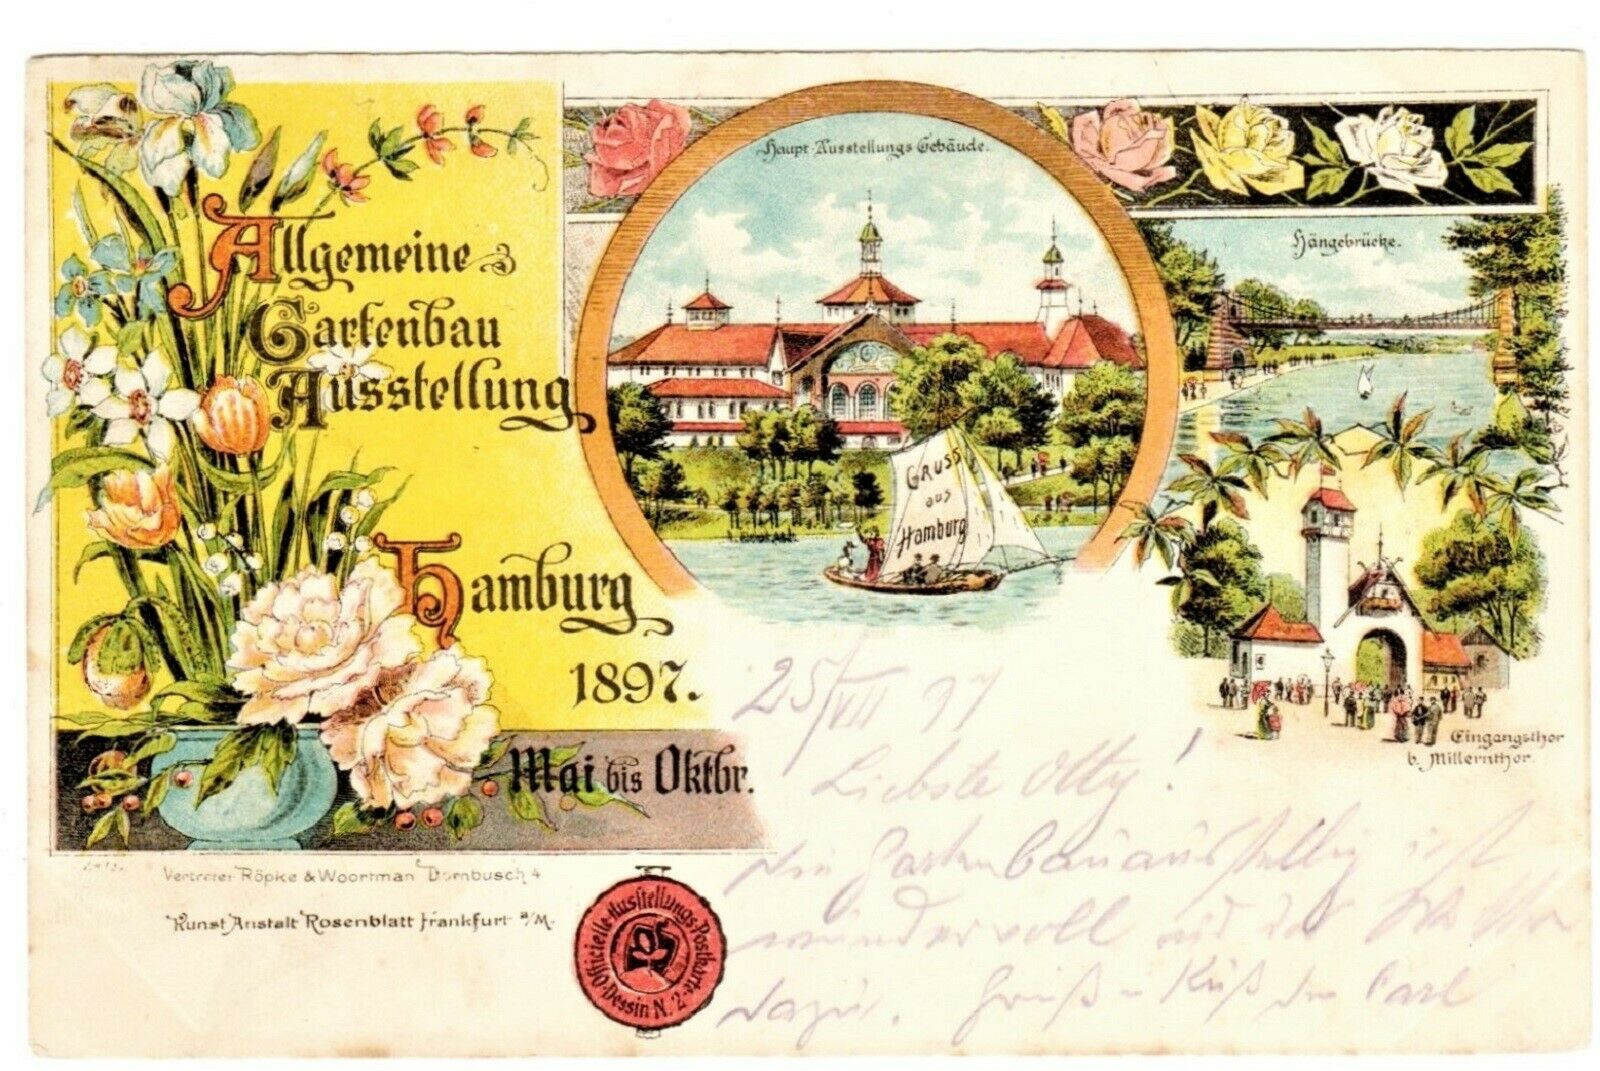 Allgemeine
Gartenbau
Ausstellung
Hamburg
1897.
Mai bis Oktbr.
Haupt-Ausstellungs Gebäude.
Gruss
aus
Hamburg
Hängebrücke.
Eingangsthor
b. Millernthor.
25/VII 97
Liebste Otty!
Die Gartenbauausstellung ist
wundervoll und das
dazu. Gruß u Kuß Dein Carl
Vertreter Röpke & Woortman Dornbusch 4
Kunst Anstalt Rosenblatt Frankfurt a/M.
Officielle-Ausstellungs-Postkarte
Dessin N. 2